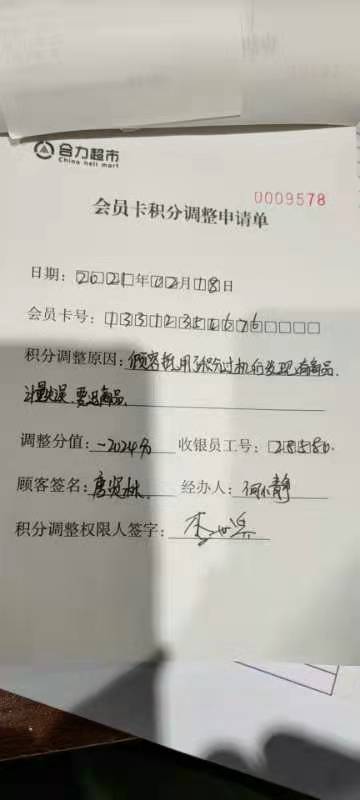 合力超市
China heli mart
0009578
会员卡积分调整申请单
日期：2021年02月18日
会员卡号：13312351676
积分调整原因：顾客抵用了积分过机后发现有商品
计量失误 要退商品
调整分值：-2024分 收银员工号：23586
顾客签名： 经办人：何小静
积分调整权限人签字：